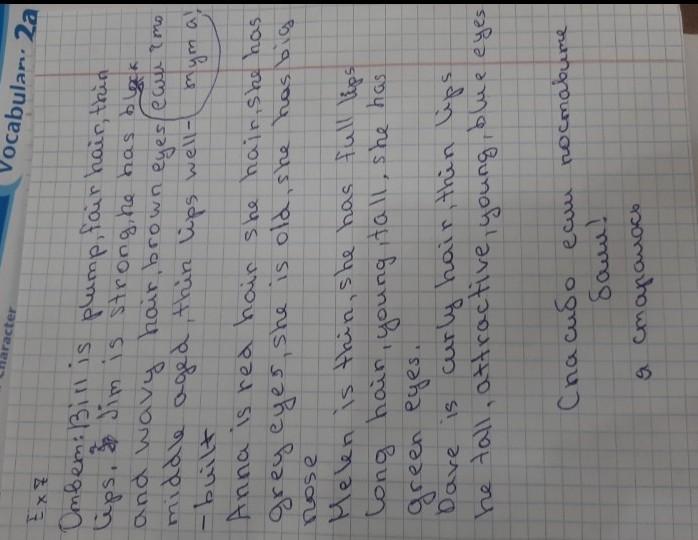 Vocabulary 2a
Character
Ex 7
Ответ: Bill is plump, fair hair, thin
lips. Jim is strong, he has black
and wavy hair, brown eyes если что
тут а!
middle aged, thin lips well-
-built
Anna is red hair she hair, she has
grey eyes, she is old, she has big
nose
Helen is thin, she has full lips
long hair, young, tall, she has
green eyes.
Dave is curly hair, thin lips
he tall, attractive, young, blue eyes
Спасибо если поставите
балл!
я старалась